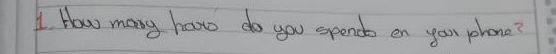 1. How many hours do you spends on your phone?